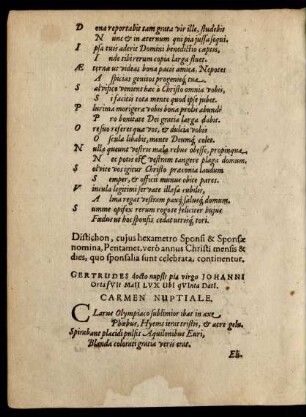 D ona reportabit tam grata vir ille, studebit
N unc & in æternum qui pia jussa sequi.
I psa tuis aderit Domini benedictio captis,
I nde tibi rerum copia larga fluet.
Æ terna ut videas bona pacis amica, Nepotes
A spicias genitos progenieq́ tua.
S alvifico venient hæc à Christo omnia vobis,
S i facitis tota mente quod ipse jubet.
P lurima morigera vobis bona prolis abunde
P ro bonitate Dei gratia larga dabit.
O rsus referet qua vos, & dulcia vobis
O scula libabit, munere Deumq́ colet.
N ulla queunt vestris mala rebus obesse, propinqua
N ec potis est vestrum tangere plaga domum.
S alvete vos igitur Christo præconia laudum
S emper, & officii munus obite pares.
V incula legitimi servate illæsa cubilis,
A lma regat vestram paxq́ salusq́ domum.
S umme opifex rerum rogate feliciter hujus
Fœderis hac sponsis cedat utriq́ tori.
Distichon, cujus hexametro Sponsi & Sponsæ
nomina, Pentamet. verò annus Christi mensis &
dies, quo sponsalia sunt celebrata, continentur.
GERTRUDES docto nupsit pia virgo JOHANNI
OrtasVIt MaII LVX UbI qVInta DatI.
CARMEN NUPTIALE.
CLarus Olympiaco sublimior ibat in axe
Phœbus, Hyems ierat tristis, & acre gelu.
Spirabant placidi pulsis Aquilonibus Euri,
Blanda colorati gratia veris erat.
Eli-